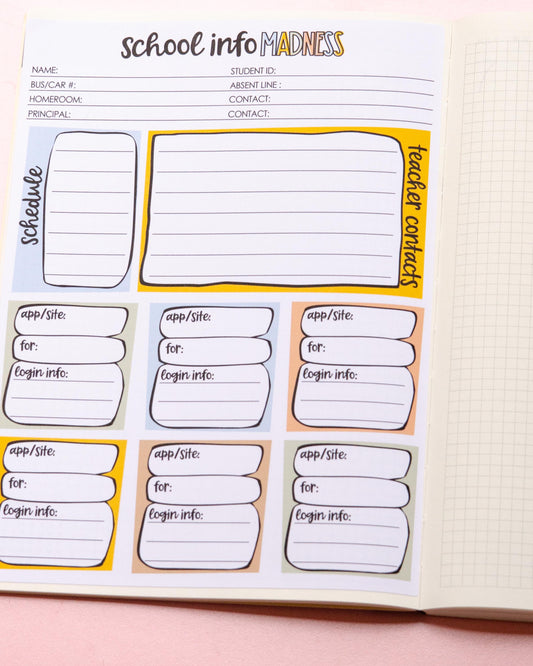 school info MADNESS
NAME: STUDENT ID:
BUS/CAR #: ABSENT LINE :
HOMEROOM: CONTACT:
PRINCIPAL: CONTACT:
schedule
teacher contacts
app/site: app/site: app/site:
for: for: for:
login info: login info: login info:
app/site: app/site: app/site:
for: for: for:
login info: login info: login info: